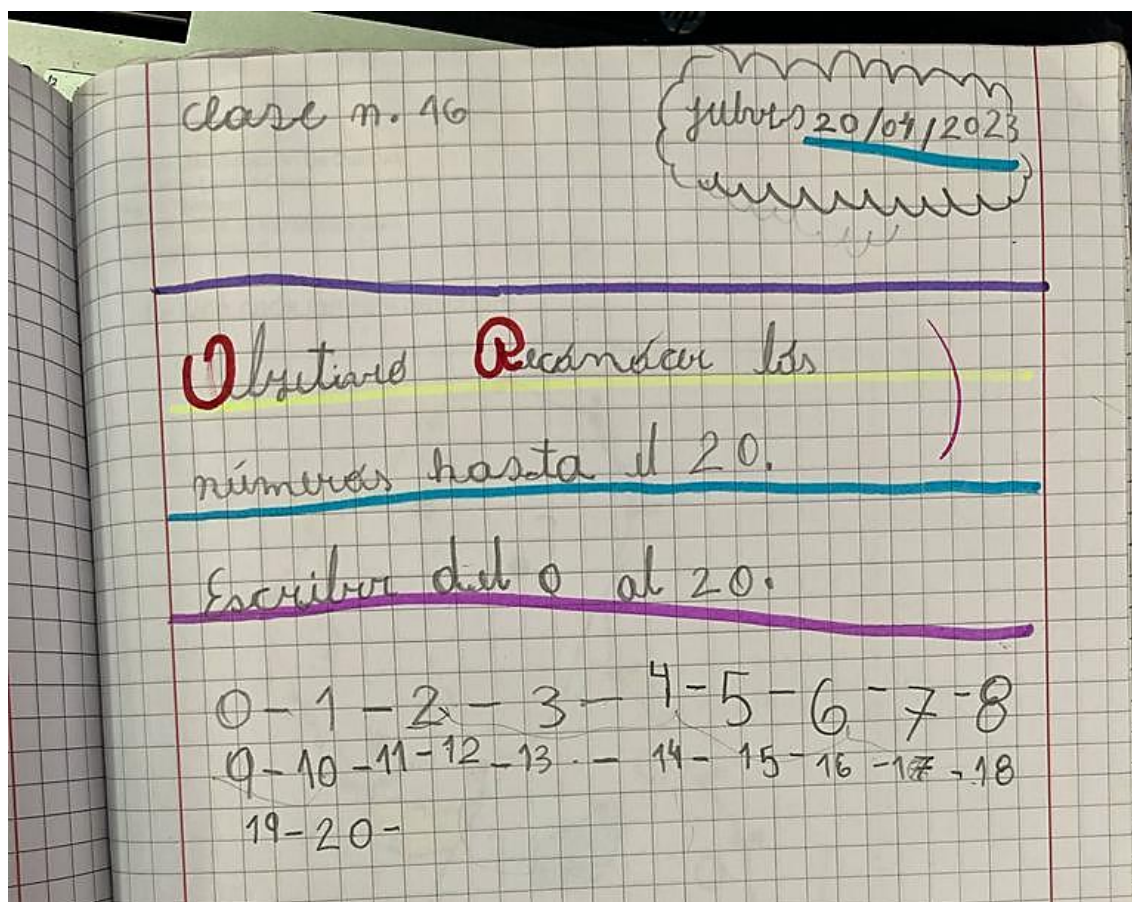 clase n. 16
juves 20/04/2023
Objetivo Reconocer los
números hasta el 20.
Escriber del 0 al 20.
0-1-2-3-4-5-6-7-8
9-10-11-12-13-14-15-16-17-18
19-20-